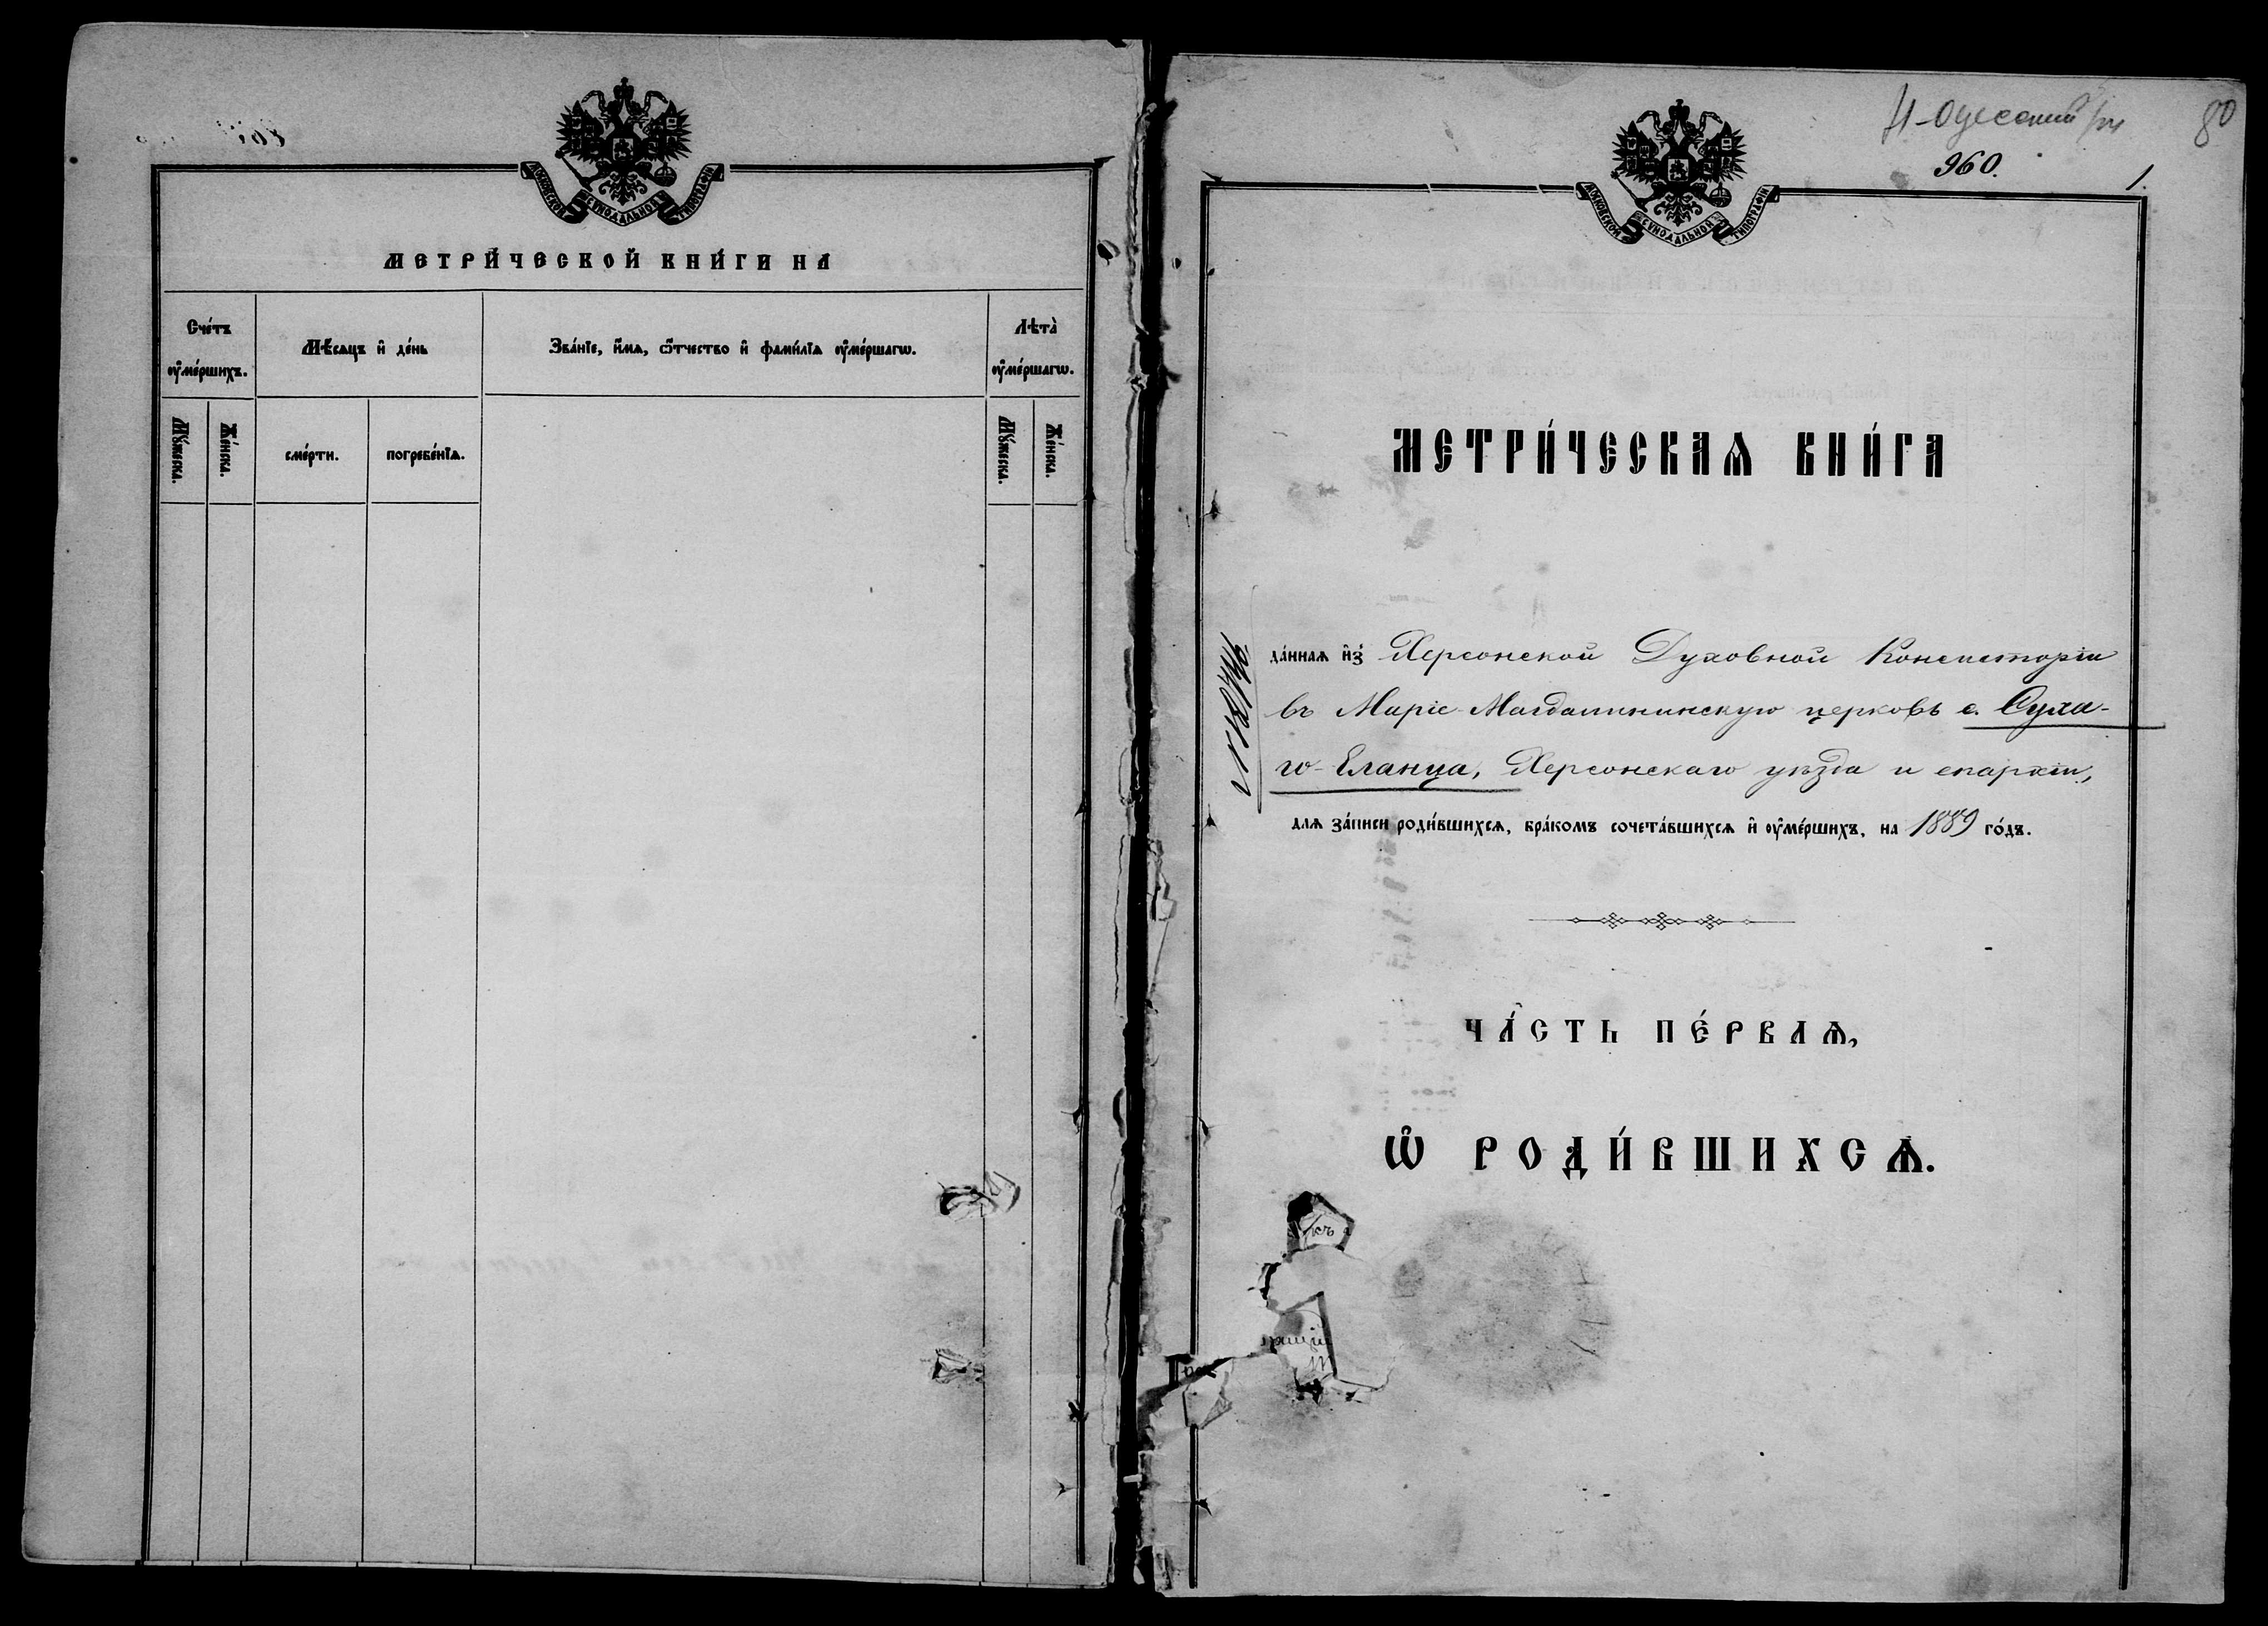 МОСКОВСКОЙ СѴНОДАЛЬНОЙ ТИПОГРАФІИ
МЕТРИ́ЧЕСКОЙ КНИ́ГИ НА
Сче́тъ ᲂу҆ме́ршихъ.
Мѣ́сяцъ и҆ де́нь
Зва́нїе, и҆́мѧ, ѻ҆́тчество и҆ фами́лїѧ ᲂу҆ме́ршагѡ.
Лѣта̀ ᲂу҆ме́ршагѡ.
Мꙋ́жеска.
Же́нска.
сме́рти.
погребе́нїѧ.
Мꙋ́жеска.
Же́нска.
Н-Одесский
80
960.
1.
МОСКОВСКОЙ СѴНОДАЛЬНОЙ ТИПОГРАФІИ
МЕТРИ́ЧЕСКАѦ КНИ́ГА
да́ннаѧ и҆з̾ Херсонской Духовной Консисторіи
въ Маріе-Магдалининскую церковь с. Суха-
го-Еланца, Херсонскаго уѣзда и епархіи,
длѧ за́писи роди́вшихсѧ, бра́комъ сочета́вшихсѧ и҆ ᲂу҆ме́ршихъ, на 1889 го́дъ.
ЧА́СТЬ ПЕ́РВАѦ,
Ѡ҆ РОДИ́ВШИХСѦ.